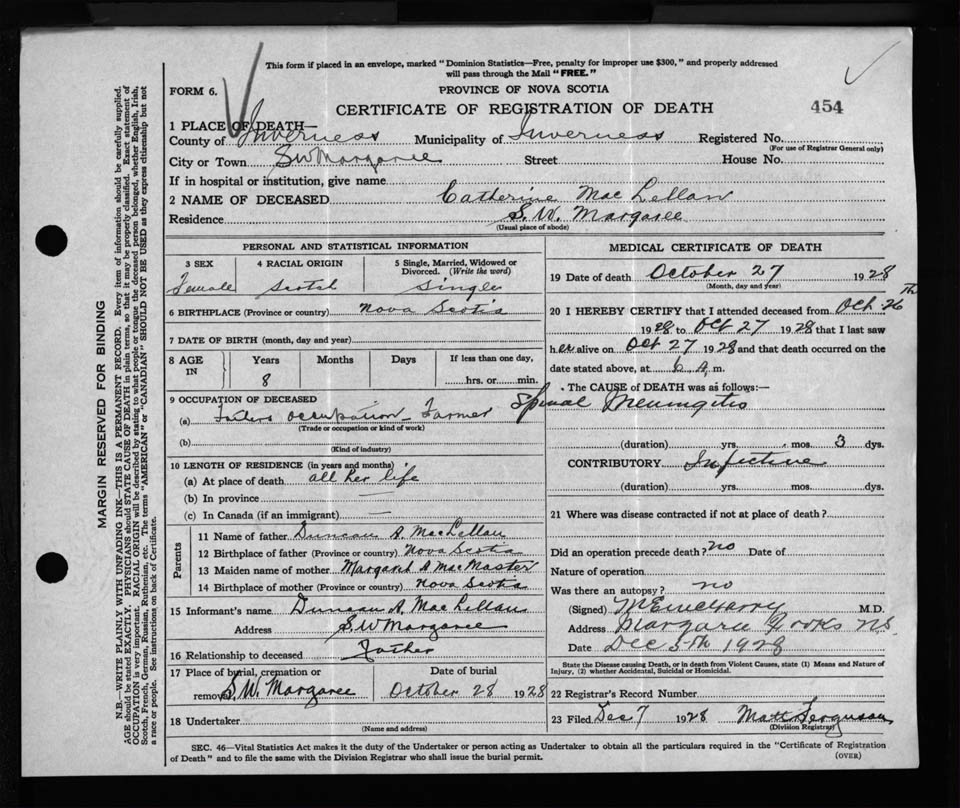 This form if placed in an envelope, marked "Dominion Statistics—Free, penalty for improper use $300," and properly addressed
will pass through the Mail "FREE."
FORM 6.
PROVINCE OF NOVA SCOTIA
CERTIFICATE OF REGISTRATION OF DEATH
454
1 PLACE OF DEATH—
County of Inverness Municipality of Inverness Registered No.
(For use of Registrar General only)
City or Town S W Margaree Street House No.
If in hospital or institution, give name
2 NAME OF DECEASED Catherine Mac Lellan
Residence S. W. Margaree
(Usual place of abode)
PERSONAL AND STATISTICAL INFORMATION
3 SEX 4 RACIAL ORIGIN 5 Single, Married, Widowed or
Divorced. (Write the word)
Female Scotch Single
6 BIRTHPLACE (Province or country) Nova Scotia
7 DATE OF BIRTH (month, day and year)
8 AGE IN Years Months Days If less than one day,
8 hrs. or min.
9 OCCUPATION OF DECEASED
(a) Fathers occupation - Farmer
(Trade or occupation or kind of work)
(b)
(Kind of industry)
10 LENGTH OF RESIDENCE (in years and months)
(a) At place of death all her life
(b) In province —
(c) In Canada (if an immigrant) —
Parents
11 Name of father Duncan A. MacLellan
12 Birthplace of father (Province or country) Nova Scotia
13 Maiden name of mother Margaret A MacMaster
14 Birthplace of mother (Province or country) Nova Scotia
15 Informant's name Duncan A. Mac Lellan
Address S W Margaree
16 Relationship to deceased Father
17 Place of burial, cremation or Date of burial
removal S. W. Margaree October 28 1928
18 Undertaker
(Name and address)
MEDICAL CERTIFICATE OF DEATH
19 Date of death October 27 1928
(Month, day and year)
20 I HEREBY CERTIFY that I attended deceased from Oct 26th
1928 to Oct 27 1928 that I last saw
her alive on Oct 27 1928 and that death occurred on the
date stated above, at 6 A. m.
The CAUSE of DEATH was as follows:—
Spinal Meningitis
(duration) yrs. mos. 3 dys.
CONTRIBUTORY Infective
(duration) yrs. mos. dys.
21 Where was disease contracted if not at place of death?
Did an operation precede death? no Date of
Nature of operation
Was there an autopsy? no
(Signed) M.D.
Address Margaree Forks N.S.
Date Dec 5th 1928
State the Disease causing Death, or in death from Violent Causes, state (1) Means and Nature of
Injury, (2) whether Accidental, Suicidal or Homicidal.
22 Registrar's Record Number
23 Filed Dec 7 1928 Matt Ferguson
(Division Registrar)
SEC. 46—Vital Statistics Act makes it the duty of the Undertaker or person acting as Undertaker to obtain all the particulars required in the "Certificate of Registration
of Death" and to file the same with the Division Registrar who shall issue the burial permit.
(OVER)
MARGIN RESERVED FOR BINDING
N.B.—WRITE PLAINLY WITH UNFADING INK—THIS IS A PERMANENT RECORD. Every item of information should be carefully supplied.
AGE should be stated EXACTLY. PHYSICIANS should STATE CAUSE OF DEATH in plain terms, so that it may be properly classified. Exact statement of
OCCUPATION is very important. RACIAL ORIGIN will be described by stating to what people or tongue the deceased person belonged, whether English, Irish,
Scotch, French, German, Russian, Ruthenian, etc. The terms "AMERICAN" or "CANADIAN" SHOULD NOT BE USED as they express citizenship but not
a race or people. See instructions on back of Certificate.